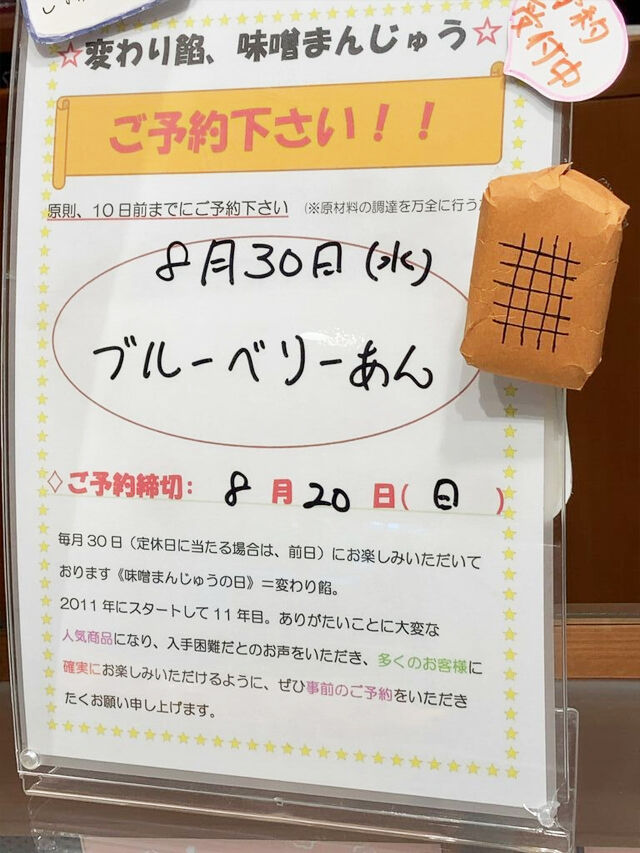 ☆変わり餡、味噌まんじゅう☆
受付中
ご予約下さい!!
原則、10日前までにご予約下さい (※原材料の調達を万全に行う
8月30日(水)
ブルーベリーあん
◇ご予約締切: 8 月 20 日( 日 )
毎月30日(定休日に当たる場合は、前日)にお楽しみいただいて
おります《味噌まんじゅうの日》=変わり餡。
2011年にスタートして11年目。ありがたいことに大変な
人気商品になり、入手困難だとのお声をいただき、多くのお客様に
確実にお楽しみいただけるように、ぜひ事前のご予約をいただき
たくお願い申し上げます。